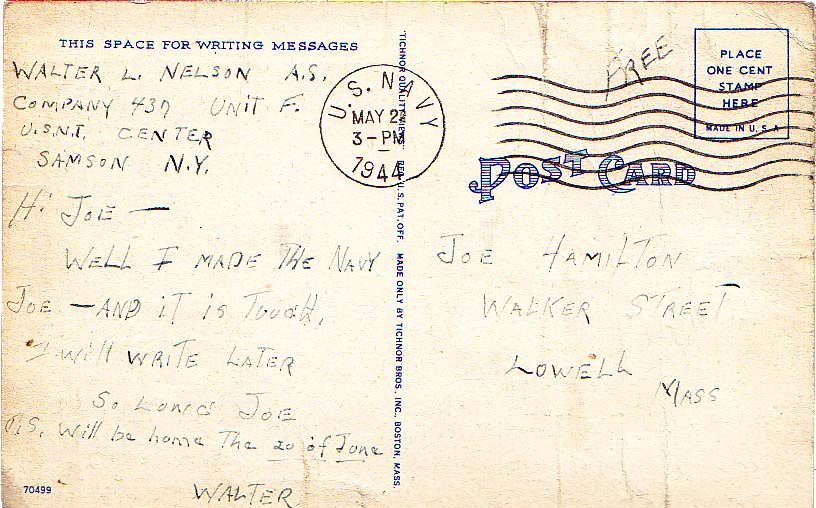 THIS SPACE FOR WRITING MESSAGES
WALTER L. NELSON A.S.
COMPANY 437 UNIT F.
U.S.N.T. CENTER
SAMSON N.Y.
Hi JOE —
WELL I MADE THE NAVY
JOE — AND iT iS TOUGH.
I Will WRiTE LATER
SO LONG JOE
P.S. Will be home The 20 of June
WALTER
70499
U.S. NAVY
MAY 2
3-PM
1944
TICHNOR QUALITY VIEWS REG. U.S. PAT. OFF. MADE ONLY BY TICHNOR BROS. INC., BOSTON, MASS.
FREE
PLACE
ONE CENT
STAMP
HERE
MADE IN U.S.A
POST CARD
JOE HAMILTON
WALKER STREET
LOWELL
MASS